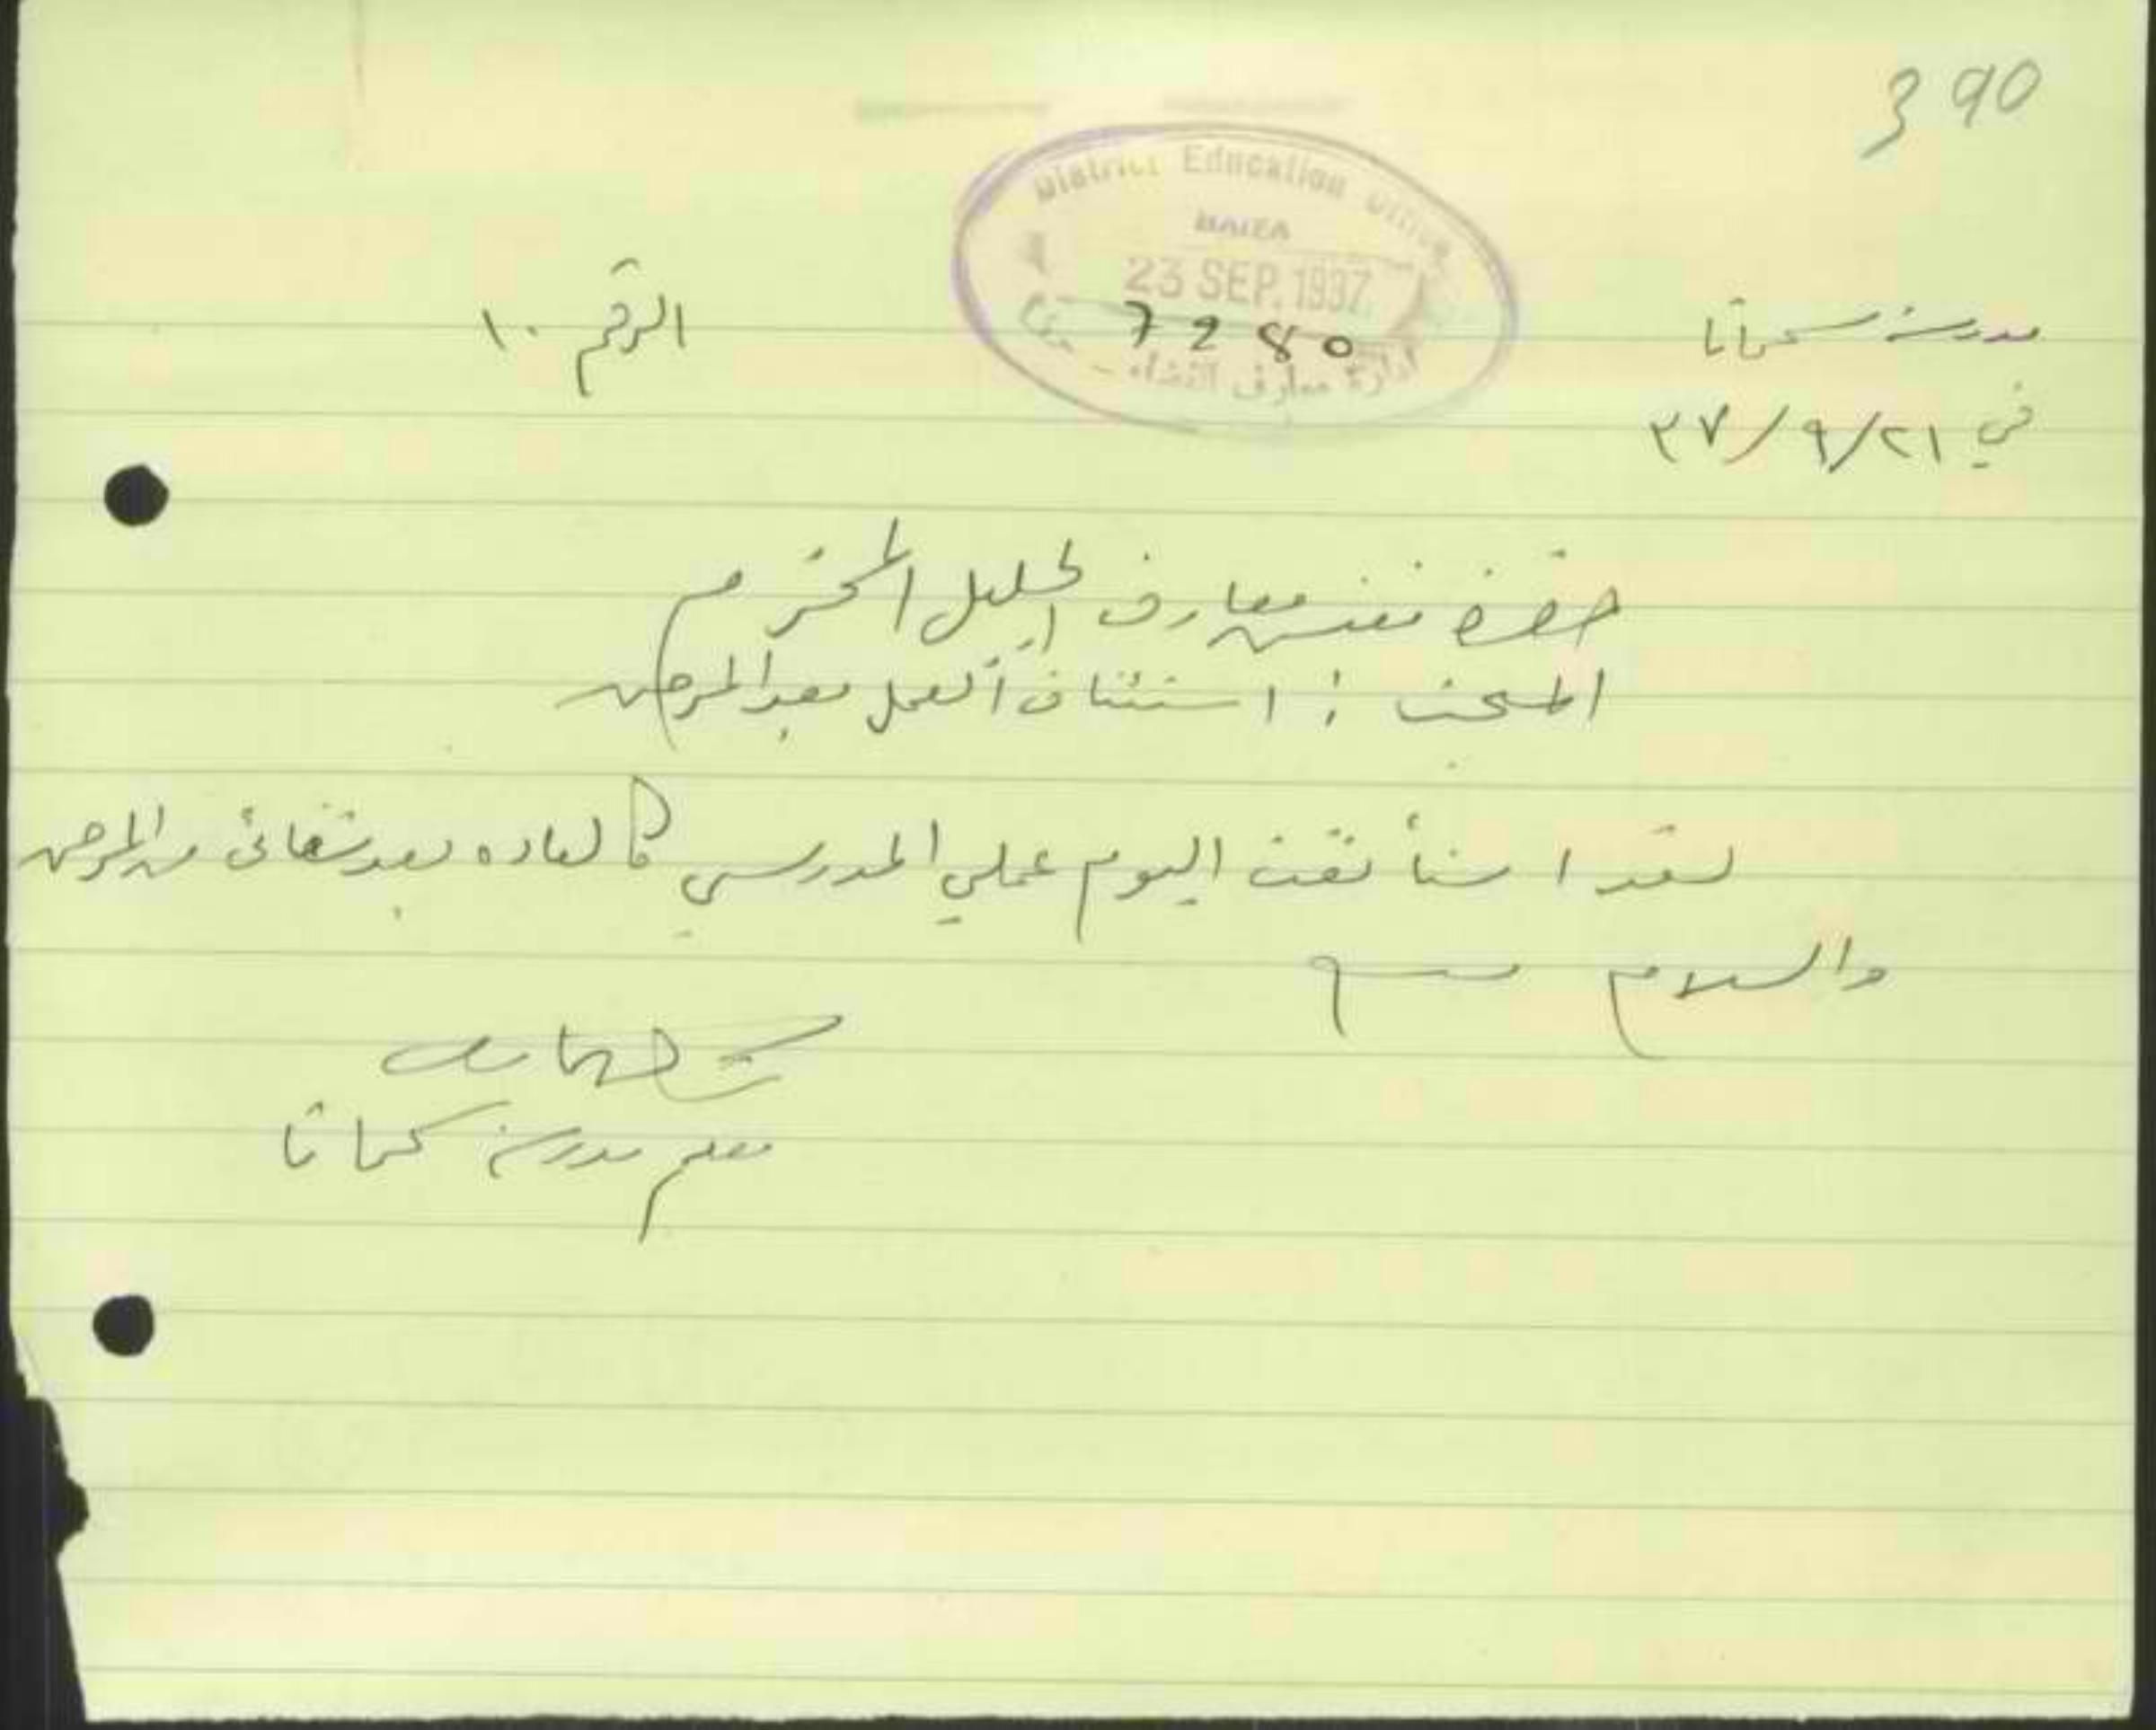 390
District Education Office
HAIFA
23 SEP. 1937
7280
ادارة معارف اللواء -
مدرسة سحماتا
الرقم ١٠
في ٢١/٩/٣٧
حضرة مفتش معارف الجليل المحترم
المبحث : استئناف العمل بعد المرض
لقد استأنفت اليوم عملي المدرسي كالعاده بعد شفائي من المرض
والسلام
معلم مدرسة سحماتا